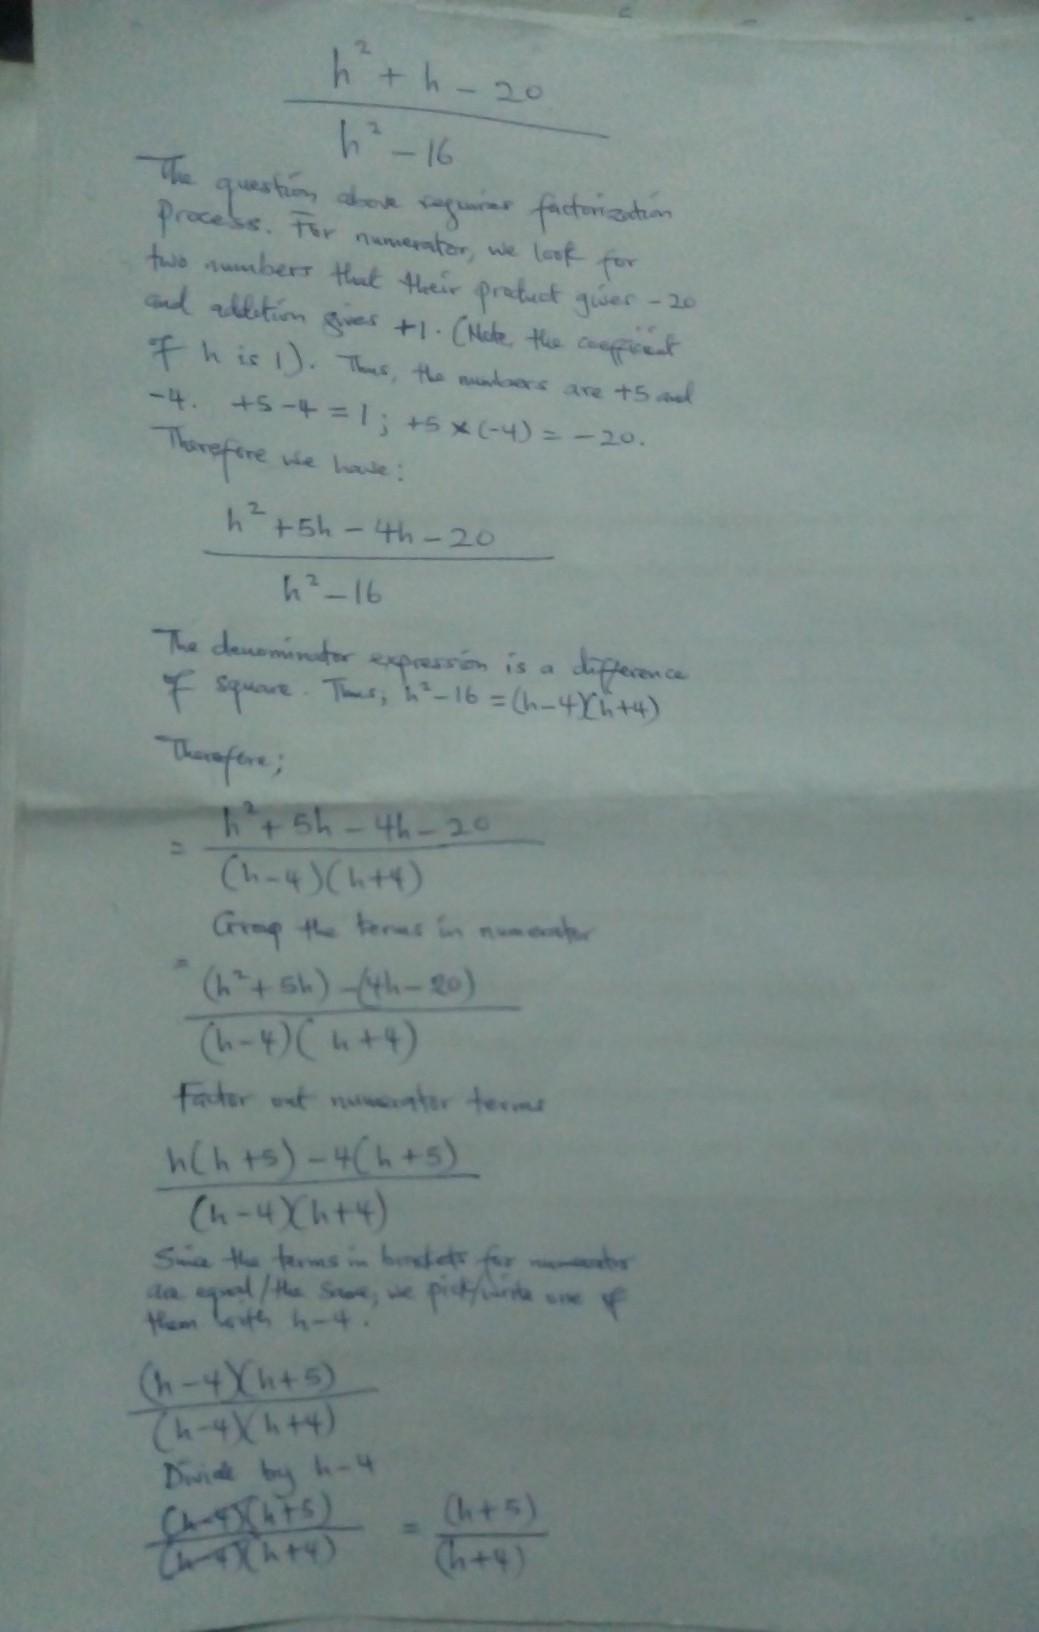 h² + h - 20
h² - 16
The question above requires factorization
process. For numerator, we look for
two numbers that their product gives -20
and addition gives +1. (Note, the coefficient
of h is 1). Thus, the numbers are +5 and
-4. +5-4 = 1; +5 × (-4) = -20.
Therefore we have:
h² + 5h - 4h - 20
h² - 16
The denominator expression is a difference
of square. Thus, h² - 16 = (h-4)(h+4)
Therefore;
= h² + 5h - 4h - 20
(h-4)(h+4)
Group the terms in numerator
= (h² + 5h) - (4h - 20)
(h-4)(h+4)
Factor out numerator terms
h(h+5) - 4(h+5)
(h-4)(h+4)
Since the terms in brackets for numerator
are equal/the same, we pick/write one of
them with h-4.
(h-4)(h+5)
(h-4)(h+4)
Divide by h-4
(h-4)(h+5) = (h+5)
(h-4)(h+4) (h+4)